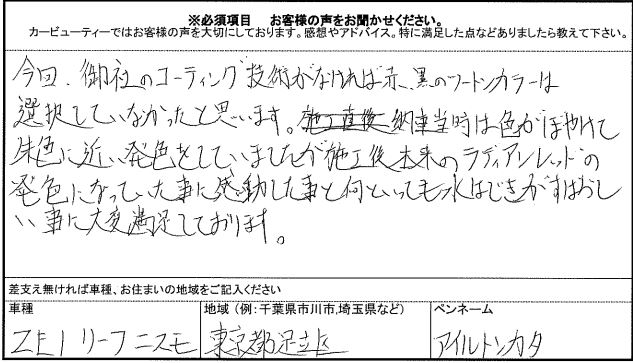 ※必須項目 お客様の声をお聞かせください。
カービューティーではお客様の声を大切にしております。感想やアドバイス。特に満足した点などありましたら教えて下さい。
今回、御社のコーティング技術がなければ赤、黒のツートンカラーは
選択していなかったと思います。施工直後納車当時は色がぼやけて
朱色に近い発色をしていましたが施工後本来のラディアンレッドの
発色になっていた事に感動した事と何といっても水はじきがすばらし
い事に大変満足しております。
差支え無ければ車種、お住まいの地域をご記入ください
車種 地域 (例:千葉県市川市,埼玉県など) ペンネーム
ZE1 リーフニスモ 東京都足立区 アイルトンカタ